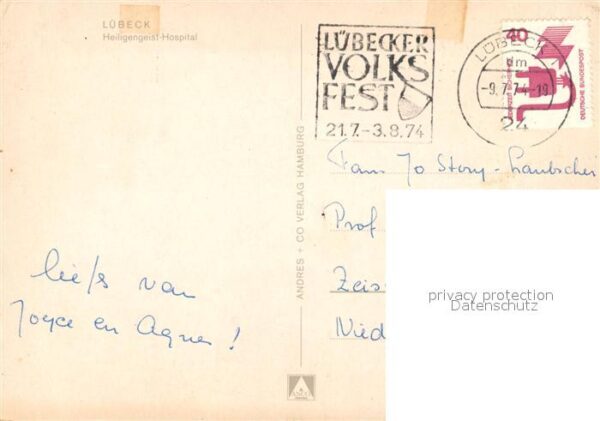 LÜBECK
Heiligengeist-Hospital
LÜBECKER
VOLKS
FEST
21.7.-3.8.74
LÜBECK
dm
-9.7.74-19
24
40
DEUTSCHE BUNDESPOST
ANDRES + CO VERLAG HAMBURG
Fam Jo Story-
Prof
Zeis
Nied
privacy protection
Datenschutz
liefs van
Joyce en Agnes!